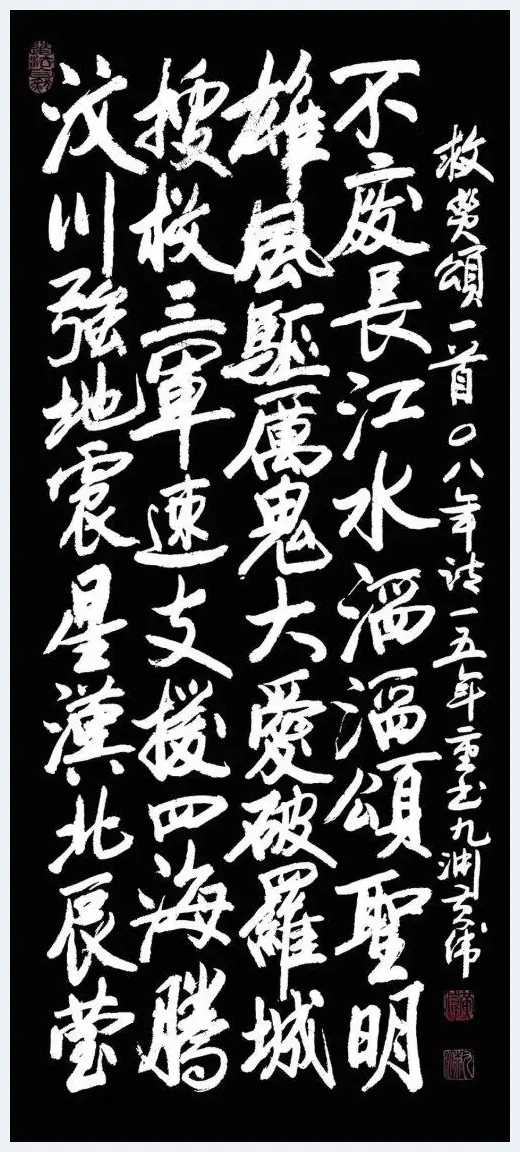 汶川強地震星漢北辰莹
搜救三軍速支援四海騰
雄風驅厲鬼大愛破羅城
不廢長江水滔滔頌聖明
救頌一首〇八年詩一五年重书九渊黄伟